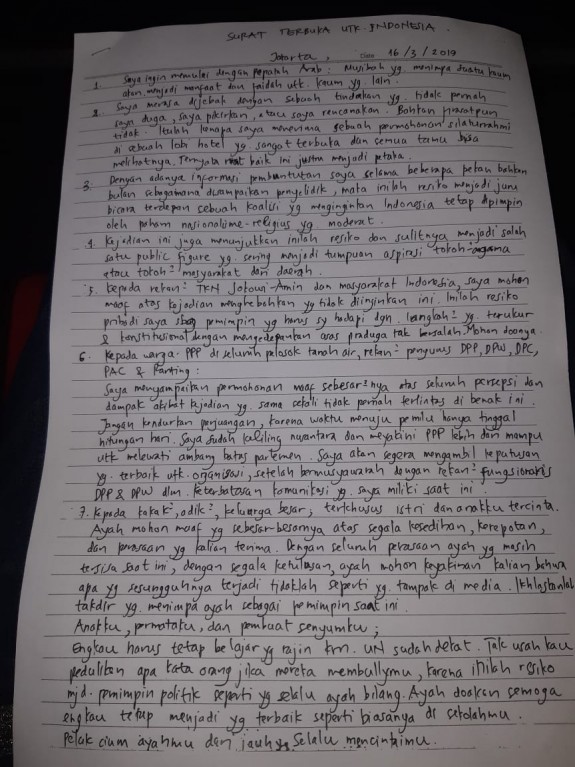 SURAT TERBUKA UTK. INDONESIA.
Jakarta, 16/3/2019
1. Saya ingin memulai dengan pepatah Arab: Musibah yg. menimpa suatu kaum
akan menjadi manfaat dan faidah utk. kaum yg. lain.
2. Saya merasa dijebak dengan sebuah tindakan yg. tidak pernah
saya duga, saya pikirkan, atau saya rencanakan. Bahkan firasatpun
tidak. Itulah kenapa saya menerima sebuah permohonan silaturrahmi
di sebuah lobi hotel yg sangat terbuka dan semua tamu bisa
melihatnya. Ternyata niat baik ini justru menjadi petaka.
3. Dengan adanya informasi pembuntutan saya selama beberapa pekan bahkan
bulan sebagaimana disampaikan penyelidik, maka inilah resiko menjadi juru
bicara terdepan sebuah koalisi yg menginginkan Indonesia tetap dipimpin
oleh paham nasionalisme-religius yg moderat.
4. Kejadian ini juga menunjukkan inilah resiko dan sulitnya menjadi salah
satu public figure yg. sering menjadi tumpuan aspirasi tokoh² agama
atau tokoh² masyarakat dari daerah.
5. Kepada rekan² TKN Jokowi-Amin dan masyarakat Indonesia, saya mohon
maaf atas kejadian menghebohkan yg tidak diinginkan ini. Inilah resiko
pribadi saya sbg pemimpin yg harus sy hadapi dgn. langkah² yg. terukur
& konstitusional dengan mengedepankan asas praduga tak bersalah. Mohon doanya.
6. Kepada warga PPP di seluruh pelosok tanah air, rekan² pengurus DPP, DPW, DPC,
PAC & Ranting:
Saya menyampaikan permohonan maaf sebesar²nya atas seluruh persepsi dan
dampak akibat kejadian yg. sama sekali tidak pernah terlintas di benak ini.
Jangan kendurkan perjuangan, karena waktu menuju pemilu hanya tinggal
hitungan hari. Saya sudah keliling nusantara dan meyakini PPP lebih dari mampu
utk melewati ambang batas parlemen. Saya akan segera mengambil keputusan
yg. terbaik utk. organisasi, setelah bermusyawarah dengan rekan² fungsionaris
DPP & DPW dlm. keterbatasan komunikasi yg. saya miliki saat ini.
7. Kepada kakak², adik², keluarga besar, terkhusus istri dan anakku tercinta.
Ayah mohon maaf yg sebesar-besarnya atas segala kesedihan, kerepotan,
dan perasaan yg kalian terima. Dengan seluruh perasaan ayah yg masih
tersisa saat ini, dengan segala ketulusan, ayah mohon keyakinan kalian bahwa
apa yg sesungguhnya terjadi tidaklah seperti yg. tampak di media. Ikhlaskanlah
takdir yg. menimpa ayah sebagai pemimpin saat ini.
Anakku, permataku, dan pembuat senyumku;
Engkau harus tetap belajar yg rajin krn. UN sudah dekat. Tak usah kau
pedulikan apa kata orang jika mereka membullymu, karena inilah resiko
mjd. pemimpin politik seperti yg selalu ayah bilang. Ayah doakan semoga
engkau tetap menjadi yg terbaik seperti biasanya di sekolahmu.
Peluk cium ayahmu dari jauh yg selalu mencintaimu.